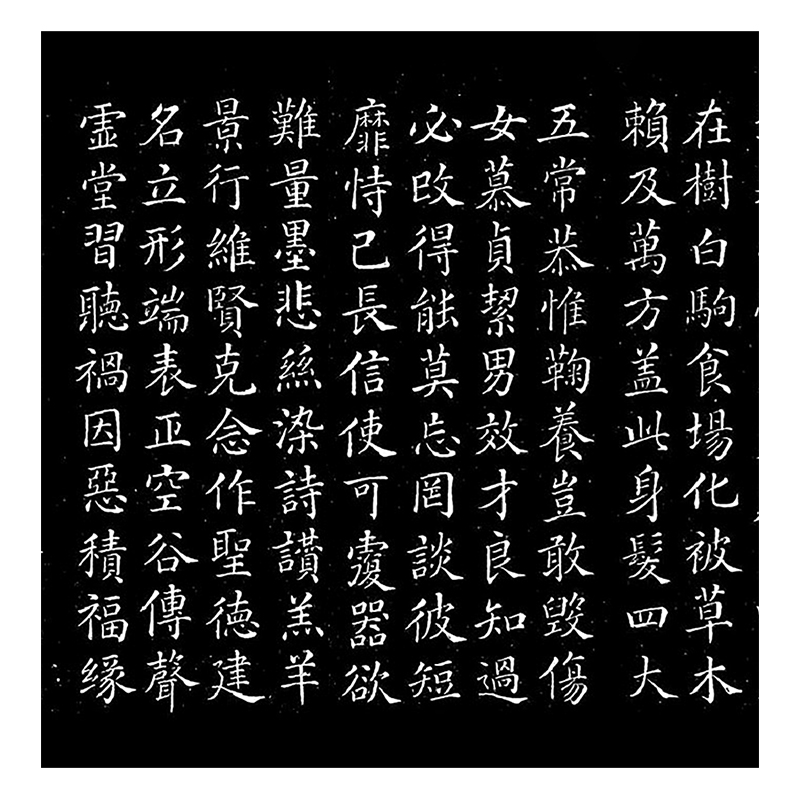 在樹白駒食場化被草木
賴及萬方盖此身髮四大
五常恭惟鞠養豈敢毀傷
女慕貞絜男效才良知過
必改得能莫忘罔談彼短
靡恃己長信使可覆器欲
難量墨悲絲染詩讚羔羊
景行維賢克念作聖德建
名立形端表正空谷傳聲
虛堂習聽禍因惡積福緣